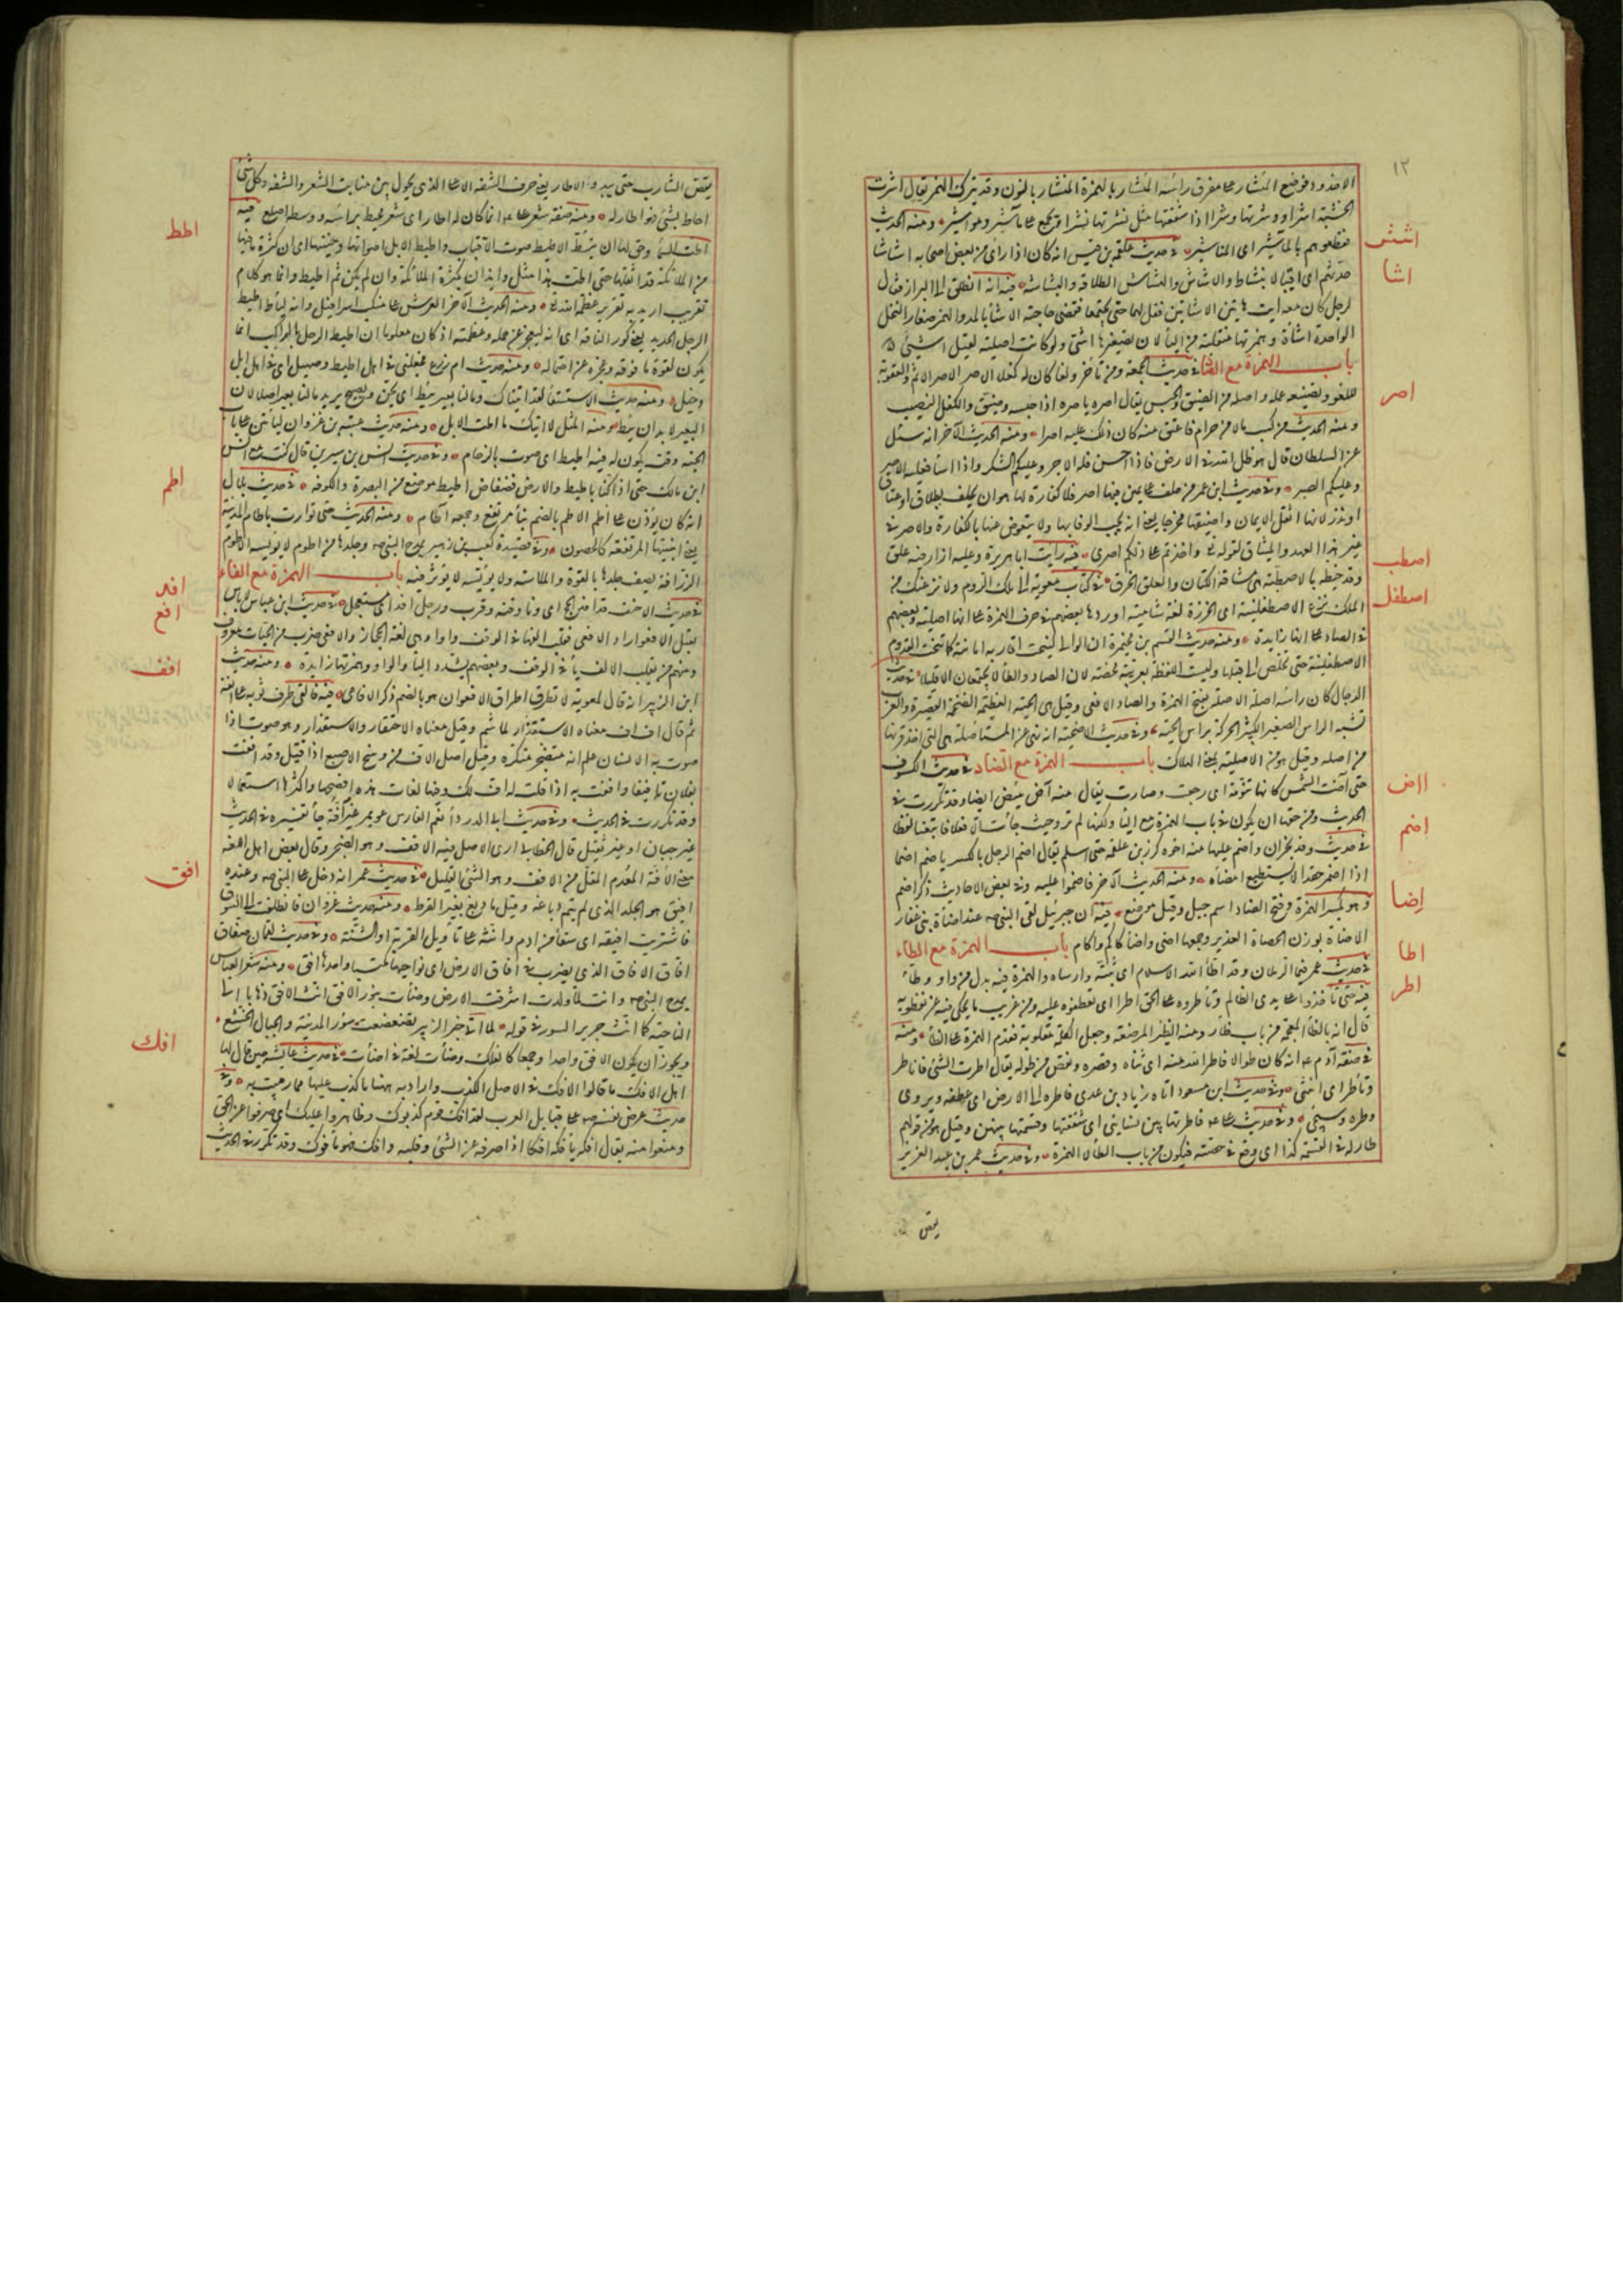 ١٢
الاخدود فوضع المئشار على مفرق راسه المئشار بالهمزة المنشار بالنون وقد يترك الهمز يقال اشرت
الخشبة اشرا ووشرتها وشرا اذا شققتها مثل نشرتها نشرا ويجمع على مآشير ومواشير ومنه الحديث
اشش
فقطعوهم بالمآشير اى المناشير في حديث علقمة بن قيس انه كان اذا راى من بعض اصحابه اشاشا
اشا
حدثهم اى اقبالا بنشاط والاشاش والهشاش الطلاقة والبشاشة فيه انه انطلق الى البراز فقال
لرجل كان معه ايت هاتين الاشاتين فقل لهما حتى تجتمعا فقضى حاجته الاشأ بالمد والهمز صغار النخل
الواحدة اشاة وهمزتها منقلبة من اليأ لان تصغيرها اشى ولو كانت اصلية لقيل اشيئ
باب الهمزة مع الصاد في حديث الجمعة ومن تأخر ولغا كان له كفلان من الاصر الاصر الاثم والعقوبة
اصر
للغوه وتضييعه عمله واصله من الضيق والحبس يقال اصره ياصره اذا حبسه وضيق والكفل النصيب
ومنه الحديث من كسب مالا من حرام فاعتق منه كان ذلك عليه اصرا ومنه الحديث الآخر انه سئل
عن السلطان قال هو ظل الله في الارض فاذا احسن فله الاجر وعليكم الشكر واذا اسأ فعليه الاصر
وعليكم الصبر وفي حديث ابن عمر من حلف على يمين فيها اصر فلا كفارة لها هو ان يحلف بطلاق او عتاق
او نذر لانها اثقل الايمان واضيقها مخرجا يعنى انه يجب الوفا بها ولا يتعوض عنها بالكفارة والاصر في
غير هذا العهد والميثاق لقوله تع واخذتم على ذلكم اصرى فيه رأيت ابا هريرة وعليه ازار فيه علق
اصطب
وقد خيطه بالاصطبة هى مشاقة الكتان والعلق الخرق في كتاب معوية الى ملك الروم ولانزعنك من
اصطفل
الملك نزع الاصطفلينة اى الجزرة لغة شامية اوردها بعضهم في حرف الهمزة على انها اصلية وبعضهم
في الصاد على انها زايدة ومنه حديث القسم بن مخيمرة ان الوالى لينحت اقاربه امانته كما تنحت القدوم
الاصطفلينة حتى تخلص الى قلبها وليست اللفظة بعربية محضة لان الصاد والطأ لا يجتمعان الا قليلا في حديث
الدجال كان راسه اصلة الاصلة بفتح الهمزة والصاد الافعى وقيل هى الحية العظيمة الضخمة القصيرة والعرب
تشبه الراس الصغير الكثير الحركة براس الحية وفي حديث الاضحية انه نهى عن المستأصلة هى التى اخذ قرنها
من اصله وقيل هو من الاصيلة بمعنى الهلاك باب الهمزة مع الضاد في حديث الكسوف
ااض
حتى آضت الشمس كانها تنومة اى رجعت وصارت يقال منه آض يئيض ايضا وقد تكررت في
الحديث ومن حقها ان يكون في باب الهمزة مع اليأ ولكنها لم ترد حيث جأت الا فعلا فاتبعنا لفظها
اضم
في حديث وفد نجران واضم عليها منه اخوه كرز بن علقمة حتى اسلم يقال اضم الرجل بالكسر ياضم اضما
اذا اضمر حقدا لا يستطيع امضأه ومنه الحديث الآخر فاضموا عليه وفي بعض الاحاديث ذكر اضم
اضا
وهو بكسر الهمزة وفتح الضاد اسم جبل وقيل موضع فيه ان جبرئيل لقى النبى صه عند اضاة بنى غفار
الاضاة بوزن الحصاة الغدير وجمعها اضى واضأ كاكم واكام باب الهمزة مع الطاء
اطا
في حديث عمر فيم الرملان وقد اطأ الله الاسلام اى ثبته وارساه والهمزة فيه بدل من واو وطأ
اطر
فيه حتى تأخذوا على يدى الظالم وتأطروه على الحق اطرا اى تعطفوه عليه ومن غريب ما يحكى فيه عن نفطويه
قال انه بالظأ المعجمة من باب ظأر ومنه الظئر المرضعة وجعل الكلمة مقلوبة فقدم الهمزة على الظأ ومنه
في صفة آدم عم انه كان طوالا فاطر الله منه اى ثناه وقصره ونقص من طوله يقال اطرت الشئ فاناطر
وتأطر اى انثنى وفي حديث ابن مسعود اتاه زياد بن عدى فاطره الى الارض اى عطفه ويروى
وطده وسيجئ وفي حديث على عم فاطرتها بين نسايى اى شققتها وقسمتها بينهن وقيل هو من قولهم
طار له في القسمة كذا اى وقع في حصته فيكون من باب الطأ لا الهمزة وفي حديث عمر بن عبد العزيز
يقص
يقص الشارب حتى يبدو الاطار يعنى حرف الشفة الاعلى الذى يحول بين منابت الشعر والشفة وكل شئ
احاط بشئ فهو اطار له ومنه صفة شعر على عم انما كان له اطار اى شعر محيط براسه ووسطه اصلع فيه
اطط
اطت السمأ وحق لها ان تئط الاطيط صوت الاقتاب واطيط الابل اصواتها وحنينها اى ان كثرة ما فيها
من الملائكة قد اثقلها حتى اطت وهذا مثل وايذان بكثرة الملائكة وان لم يكن ثم اطيط وانما هو كلام
تقريب اريد به تقرير عظمة الله تع ومنه الحديث الآخر العرش على منكب اسرافيل وانه ليأط اطيط
الرحل الجديد يعنى كور الناقة اى انه ليعجز عن حمله وعظمته اذ كان معلوما ان اطيط الرحل بالراكب انما
يكون لقوة ما فوقه وعجزه عن احتماله ومنه حديث ام زرع فجعلنى في اهل اطيط وصهيل اى في اهل ابل
وخيل ومنه حديث الاستسقأ لقد اتيناك وما لنا بعير يئط اى يحن ويصيح يريد ما لنا بعير اصلا لان
البعير لا بد ان يئط ومنه المثل لا آتيك ما اطت الابل ومنه حديث عتبة بن غزوان ليأتين على باب
الجنة وقت يكون له فيه اطيط اى صوت بالزحام وفي حديث انس بن سيرين قال كنت مع انس
ابن مالك حتى اذا كنا باطيط والارض فضفاض اطيط موضع من البصرة والكوفة في حديث بلال
اطم
انه كان يؤذن على اطم الاطم بالضم بنأ مرتفع وجمعه آطام ومنه الحديث حتى توارت باطام المدينة
يعنى ابنيتها المرتفعة كالحصون وفي قصيدة كعب بن زهير يمدح النبى صه وجلدها من اطوم لا يؤيسه الاطوم
الزرافة يصف جلدها بالقوة والملاسة ولا يؤيسه لا يؤثر فيه باب الهمزة مع الفاء
افد
في حديث الاحنف قد افد الحج اى دنا وقته وقرب ورجل افد اى مستعجل في حديث ابن عباس لا باس
افع
بقتل الافعو اراد الافعى فقلب الفها في الوقف واوا وهى لغة الحجاز والافعى ضرب من الحيات معروف
ومنهم من يقلب الالف يأ في الوقف وبعضهم يشدد اليا والواو وهمزتها زايدة ومنه حديث
افف
ابن الزبير انه قال لمعوية لا تطرق اطراق الافعوان هو بالضم ذكر الافاعى فيه فالقى طرف ثوبه على انفه
ثم قال اف اف معناه الاستقذار لما شم وقيل معناه الاحتقار والاستقلال وهو صوت اذا
صوت به الانسان علم انه متضجر متكره وقيل اصل الاف من وسخ الاصبع اذا فتل وقد اففت
بفلان تأفيفا واففت به اذا قلت له اف لك وفيها لغات هذه افصحها واكثرها استعمالا
وقد تكررت في الحديث وفي حديث ابى الدردأ نعم الفارس عويمر غير افة جأ تفسيره في الحديث
غير جبان او غير ثقيل قال الخطابى ارى الاصل فيه الافف وهو الضجر وقال بعض اهل اللغة
معنى الافة المعدم المقل من الافف وهو الشئ القليل في حديث عمر انه دخل على النبى صه وعنده
افق
افيق هو الجلد الذى لم يتم دباغه وقيل ما دبغ بغير القرظ ومنه حديث غزوان فانطلقت الى السوق
فاشتريت افيقة اى سقأ من ادم وانثه على تاويل القربة او الشنة وفي حديث لقمان صفاق
افاق الافاق الذى يضرب في آفاق الارض اى نواحيها مكتسبا واحدها افق ومنه شعر العباس
يمدح النبى صه وانت لما ولدت اشرقت الارض وضأت بنورك الافق انث الافق ذهابا الى
الناحية كما انث جرير السور في قوله لما اتى خبر الزبير تضعضعت سور المدينة والجبال الخشع
ويجوز ان يكون الافق واحدا وجمعا كالفلك وضأت لغة في اضأت في حديث عايشة حين قال لها
افك
اهل الافك ما قالوا الافك في الاصل الكذب واراد به ههنا ما كذب عليها مما رميت به وفي
حديث عرض نفسه صه على قبايل العرب لقد افك قوم كذبوك وظاهروا عليك اى صرفوا عن الحق
ومنعوا منه يقال افكه يأفكه افكا اذا صرفه عن الشئ وقلبه وافك فهو مأفوك وقد تكرر في الحديث